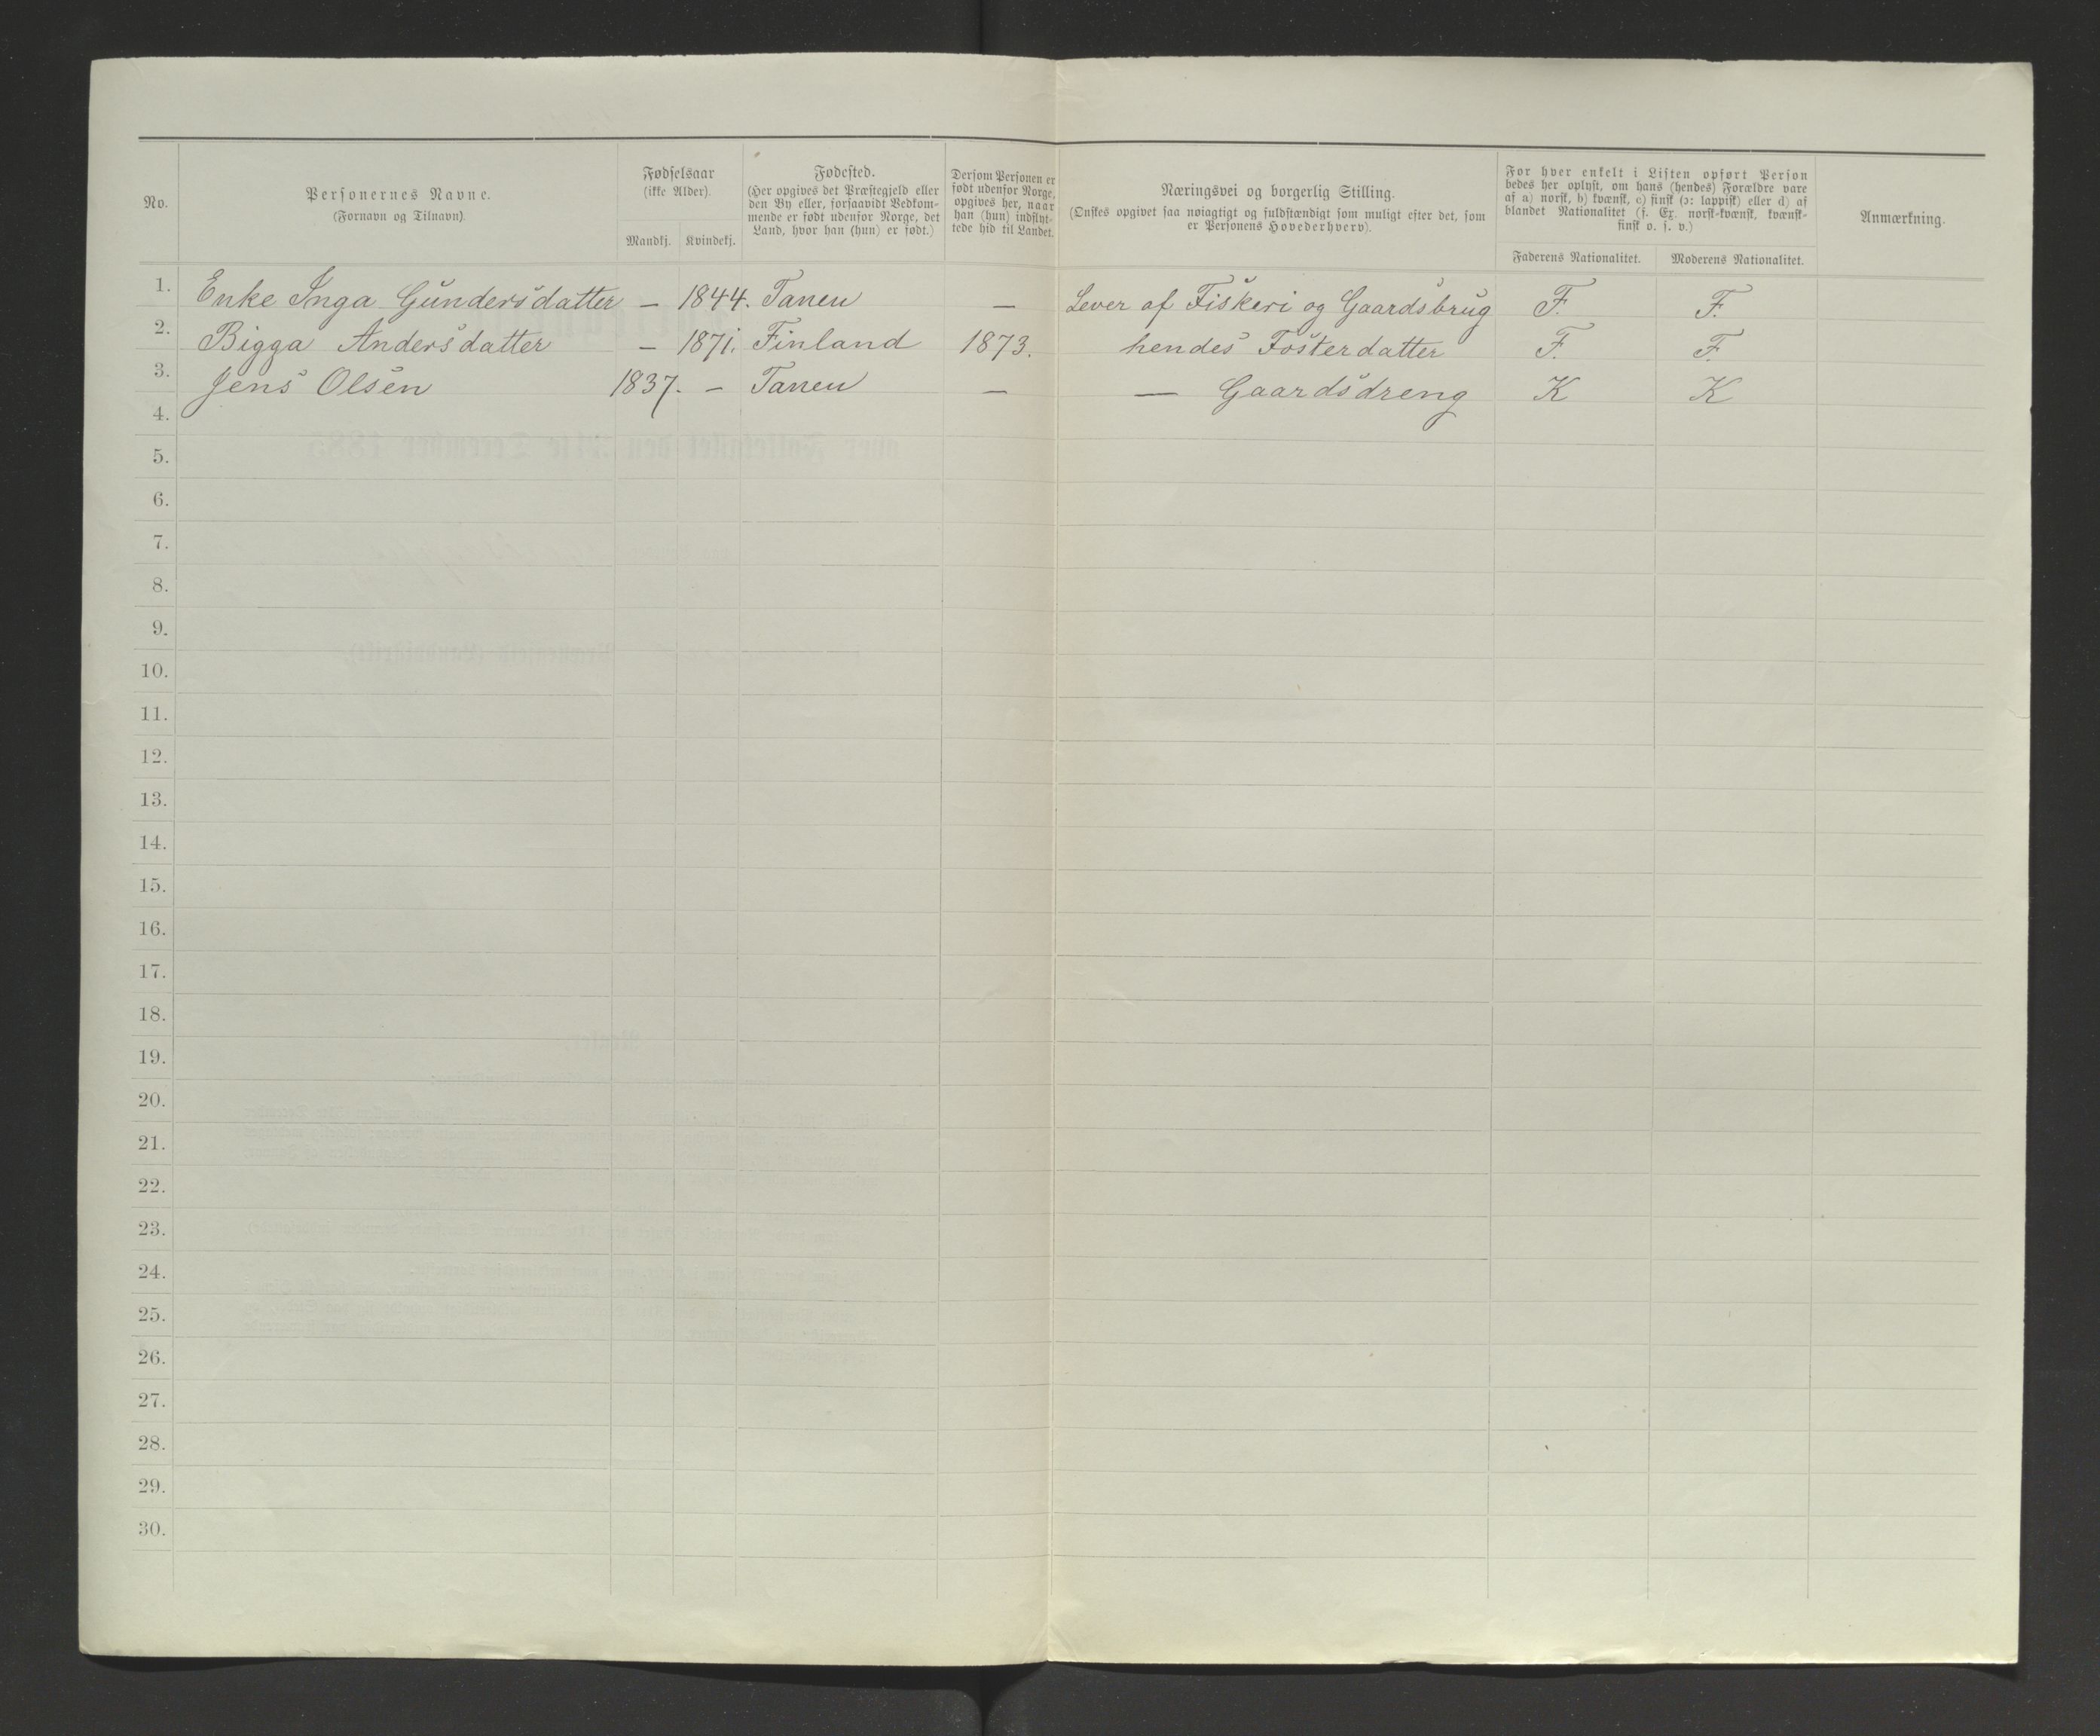 No.
Personernes Navne.
(Fornavn og Tilnavn).
Fødselsaar
(ikke Alder).
Mandkj. Kvindekj.
Fødested.
(Her opgives det Præstegjeld eller
den By eller, forsaavidt Vedkom-
mende er født udenfor Norge, det
Land, hvor han (hun) er født.)
Dersom Personen er
født udenfor Norge,
opgives her, naar
han (hun) indflyt-
tede hid til Landet.
Næringsvei og borgerlig Stilling.
(Ønskes opgivet saa nøiagtigt og fuldstændigt som muligt efter det, som
er Personens Hovederhverv).
For hver enkelt i Listen opført Person
bedes her oplyst, om hans (hendes) Forældre vare
af a) norsk, b) kvænsk, c) finsk (ɔ: lappisk) eller d) af
blandet Nationalitet (f. Ex. norsk-kvænsk, kvænsk-
finsk o. s. v.)
Faderens Nationalitet. Moderens Nationalitet.
Anmærkning.
1. Enke Inga Gundersdatter — 1844. Tanen — Lever af Fiskeri og Gaardsbrug F. F.
2. Bigga Andersdatter — 1871. Finland 1873. hendes Fosterdatter F. F.
3. Jens Olsen 1837. — Tanen — — Gaardsdreng K K
4.
5.
6.
7.
8.
9.
10.
11.
12.
13.
14.
15.
16.
17.
18.
19.
20.
21.
22.
23.
24.
25.
26.
27.
28.
29.
30.